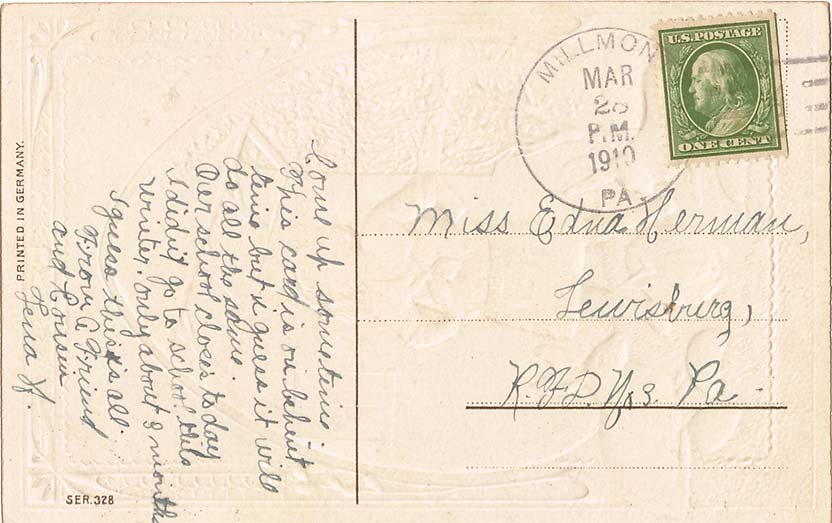 MILLMON
MAR
28
P.M.
1910
PA
U.S. POSTAGE
ONE CENT
Miss Edna Herman,
Lewisburg,
R.F.D. No 3. Pa-
Come up sometime.
This card is on behint
time but i guess it will
do all the same.
Our school closes to day
I didn't go to school this
winter. only about 3 months
I guess this is all.
From A Friend
and Cousin
Lena H.
PRINTED IN GERMANY.
SER. 328